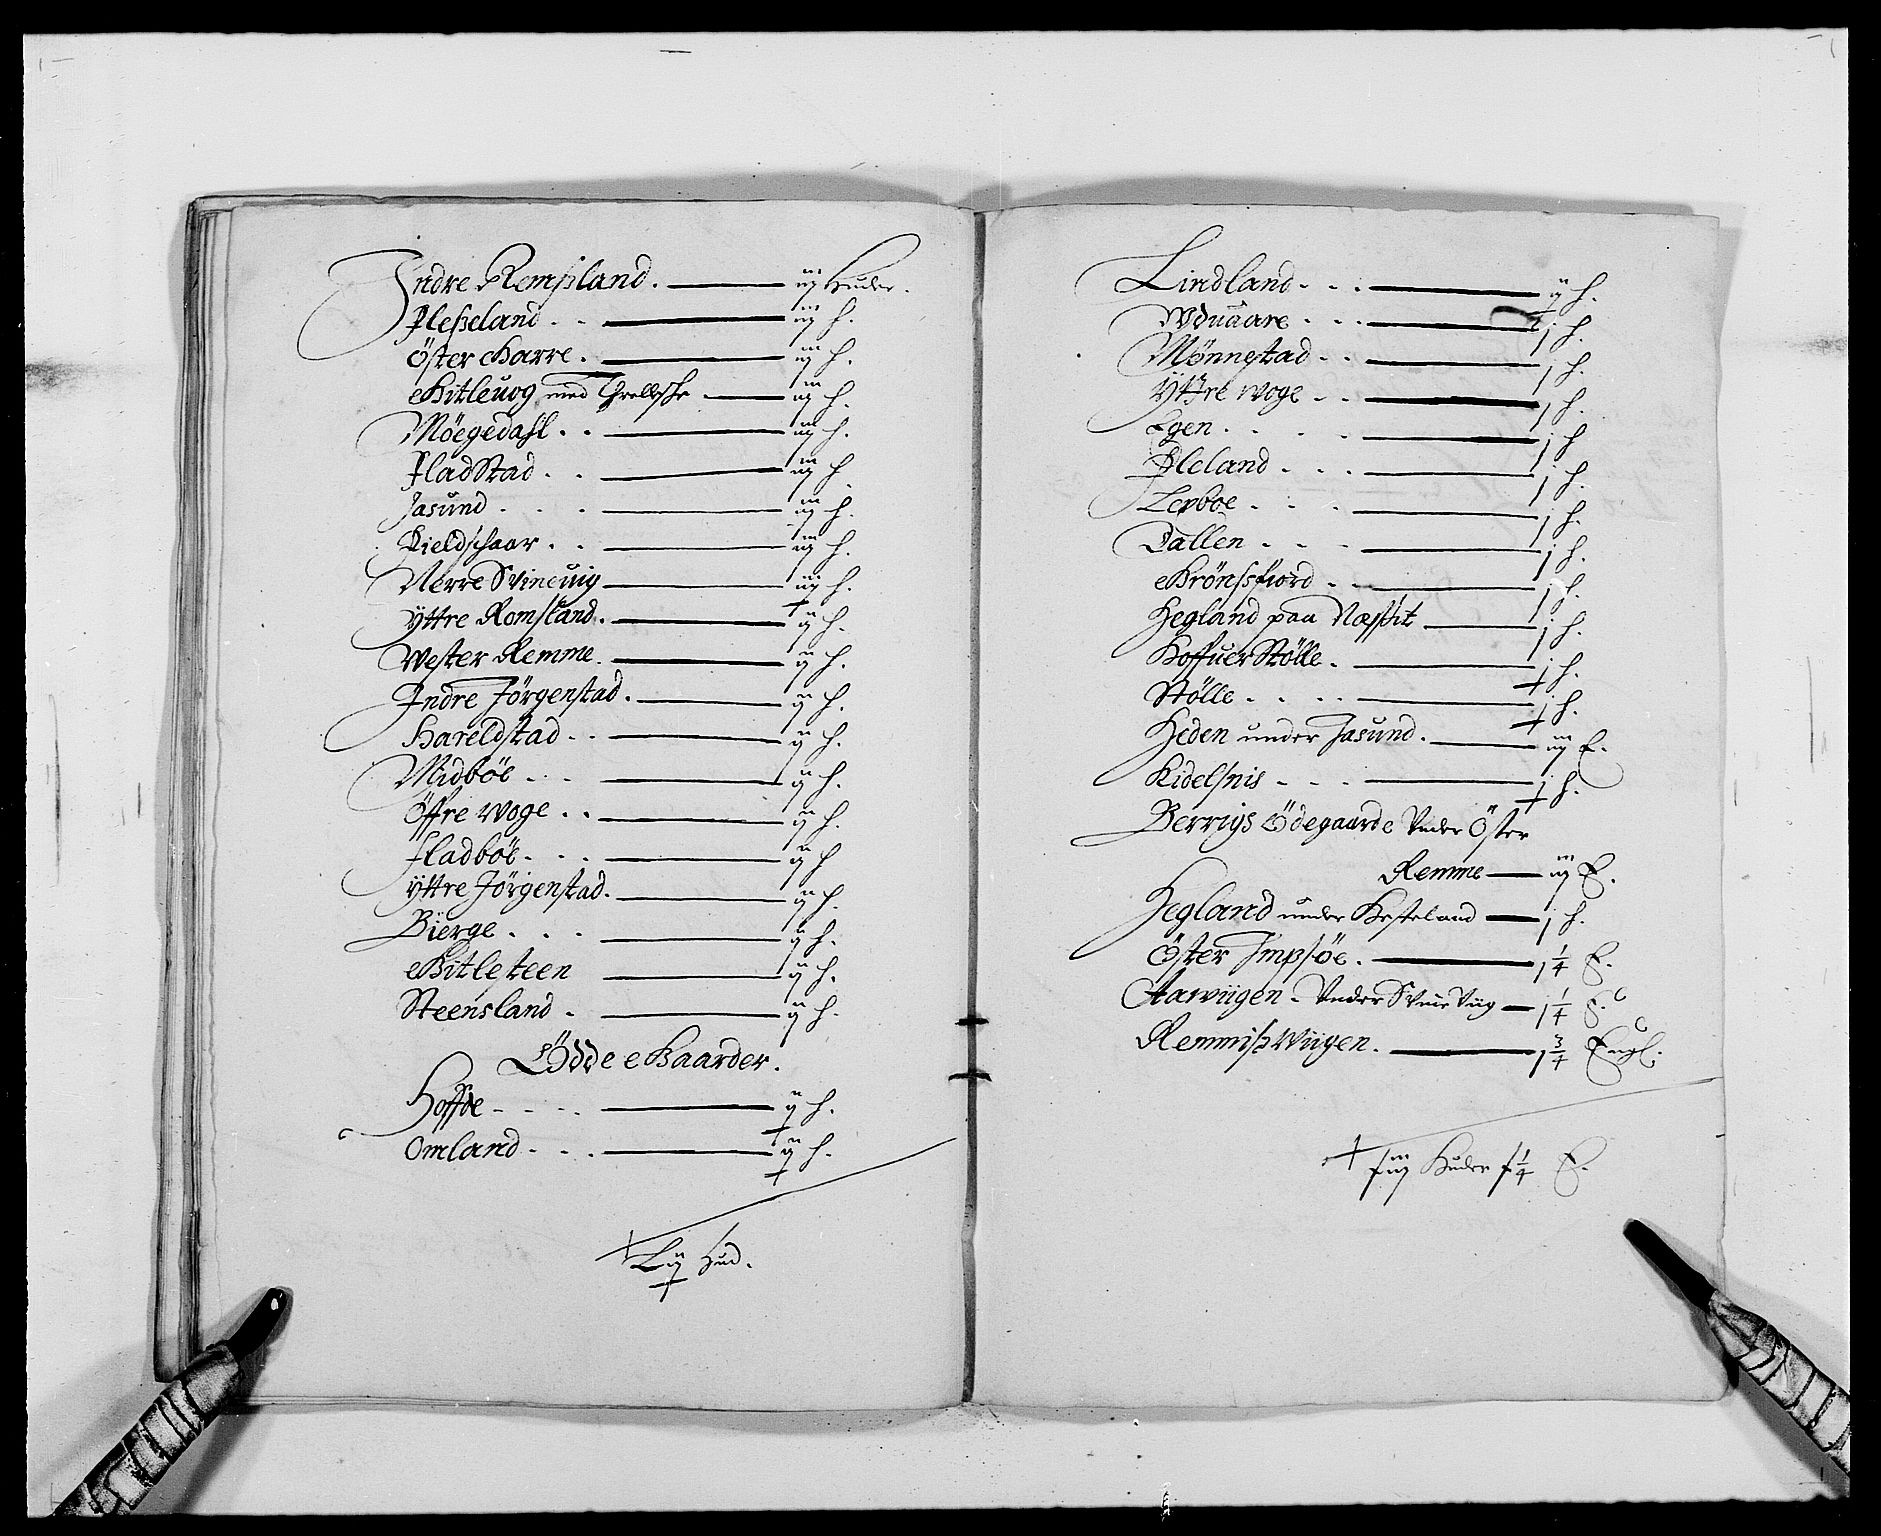 Indre Remszland. — iiij Huder.
Pleszeland — iiij h.
Öster Harre. — iiij h.
Gitleuog med — iiij h.
Möegedahl — iiij h.
Fladstad — iiij h.
Jasund — iiij h.
Kieldschaar — iiij h.
Nerre Svineuig — iij h.
Yttre Romsland. — ij h.
Wester Remme. — ij h.
Indre Jörgenstad. — ij h.
Hareldstad — ij h.
Midböe — ij h.
Öffre Woge — ij h.
Fladböe — ij h
Yttre Jörgenstad. — ij h.
Bierge — ij h.
Gitlesteen — ij h.
Steensland — ij h.
Ödde Gaarder.
Hoffde — ij h.
Omland — ij h.
Lij Hud.
Lindland — ij h.
Wduaare — j h.
Mönnestad — j h.
Yttre Woge — j h.
Egen — j h
Øleland — j h.
Lerboe — j h.
Dallen — j h.
Grönsfiord — j h.
Hegland paa Næssit — j h.
Hoffuer Stölle. — j h.
Stölle — j h.
Heden under Jasund. — iij E.
Kidelsnis — j h.
Berrigs Ödegaarde Under Öster
Remme — iij E.
Hegland under Hesteland — j h.
Öster Impsöe. — 1 1/4 E.
Aarwiigen Under Svineviig — 1 1/4 E.
Remmisz Wiigen. — 1 3/4 Engl.
Huder 1/4 E.